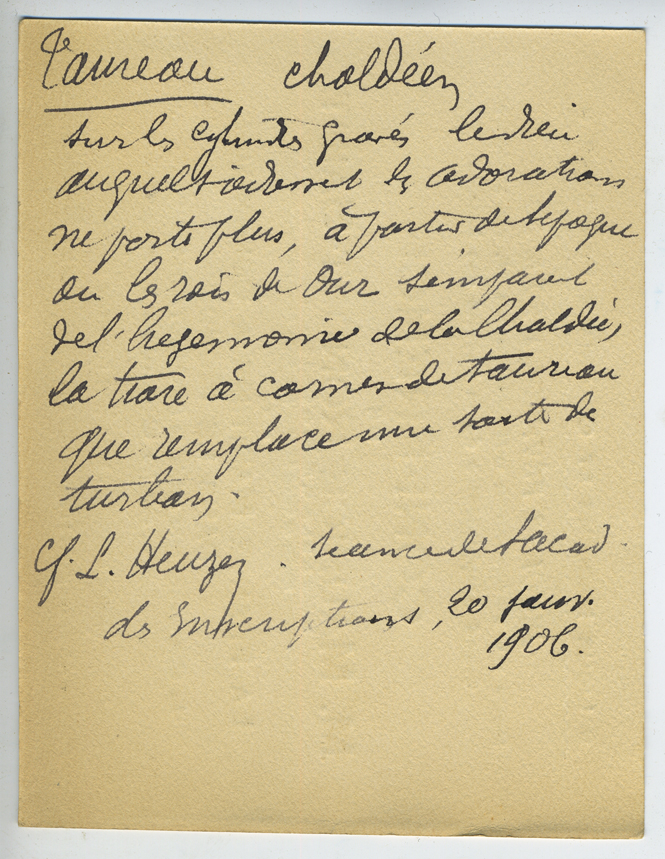 Taureau chaldéen
sur les cylindres gravés le dieu
auquel s'adressent les adorations
ne porte plus, à partir de l'epoque
ou les rois de Our s'emparent
de l'hegemonie de la Chaldée,
la tiare à cornes de taureau
que remplace une sorte de
turban.
Cf. L. Heuzey. seance de l'acad.
des Inscriptions, 20 janv.
1906.